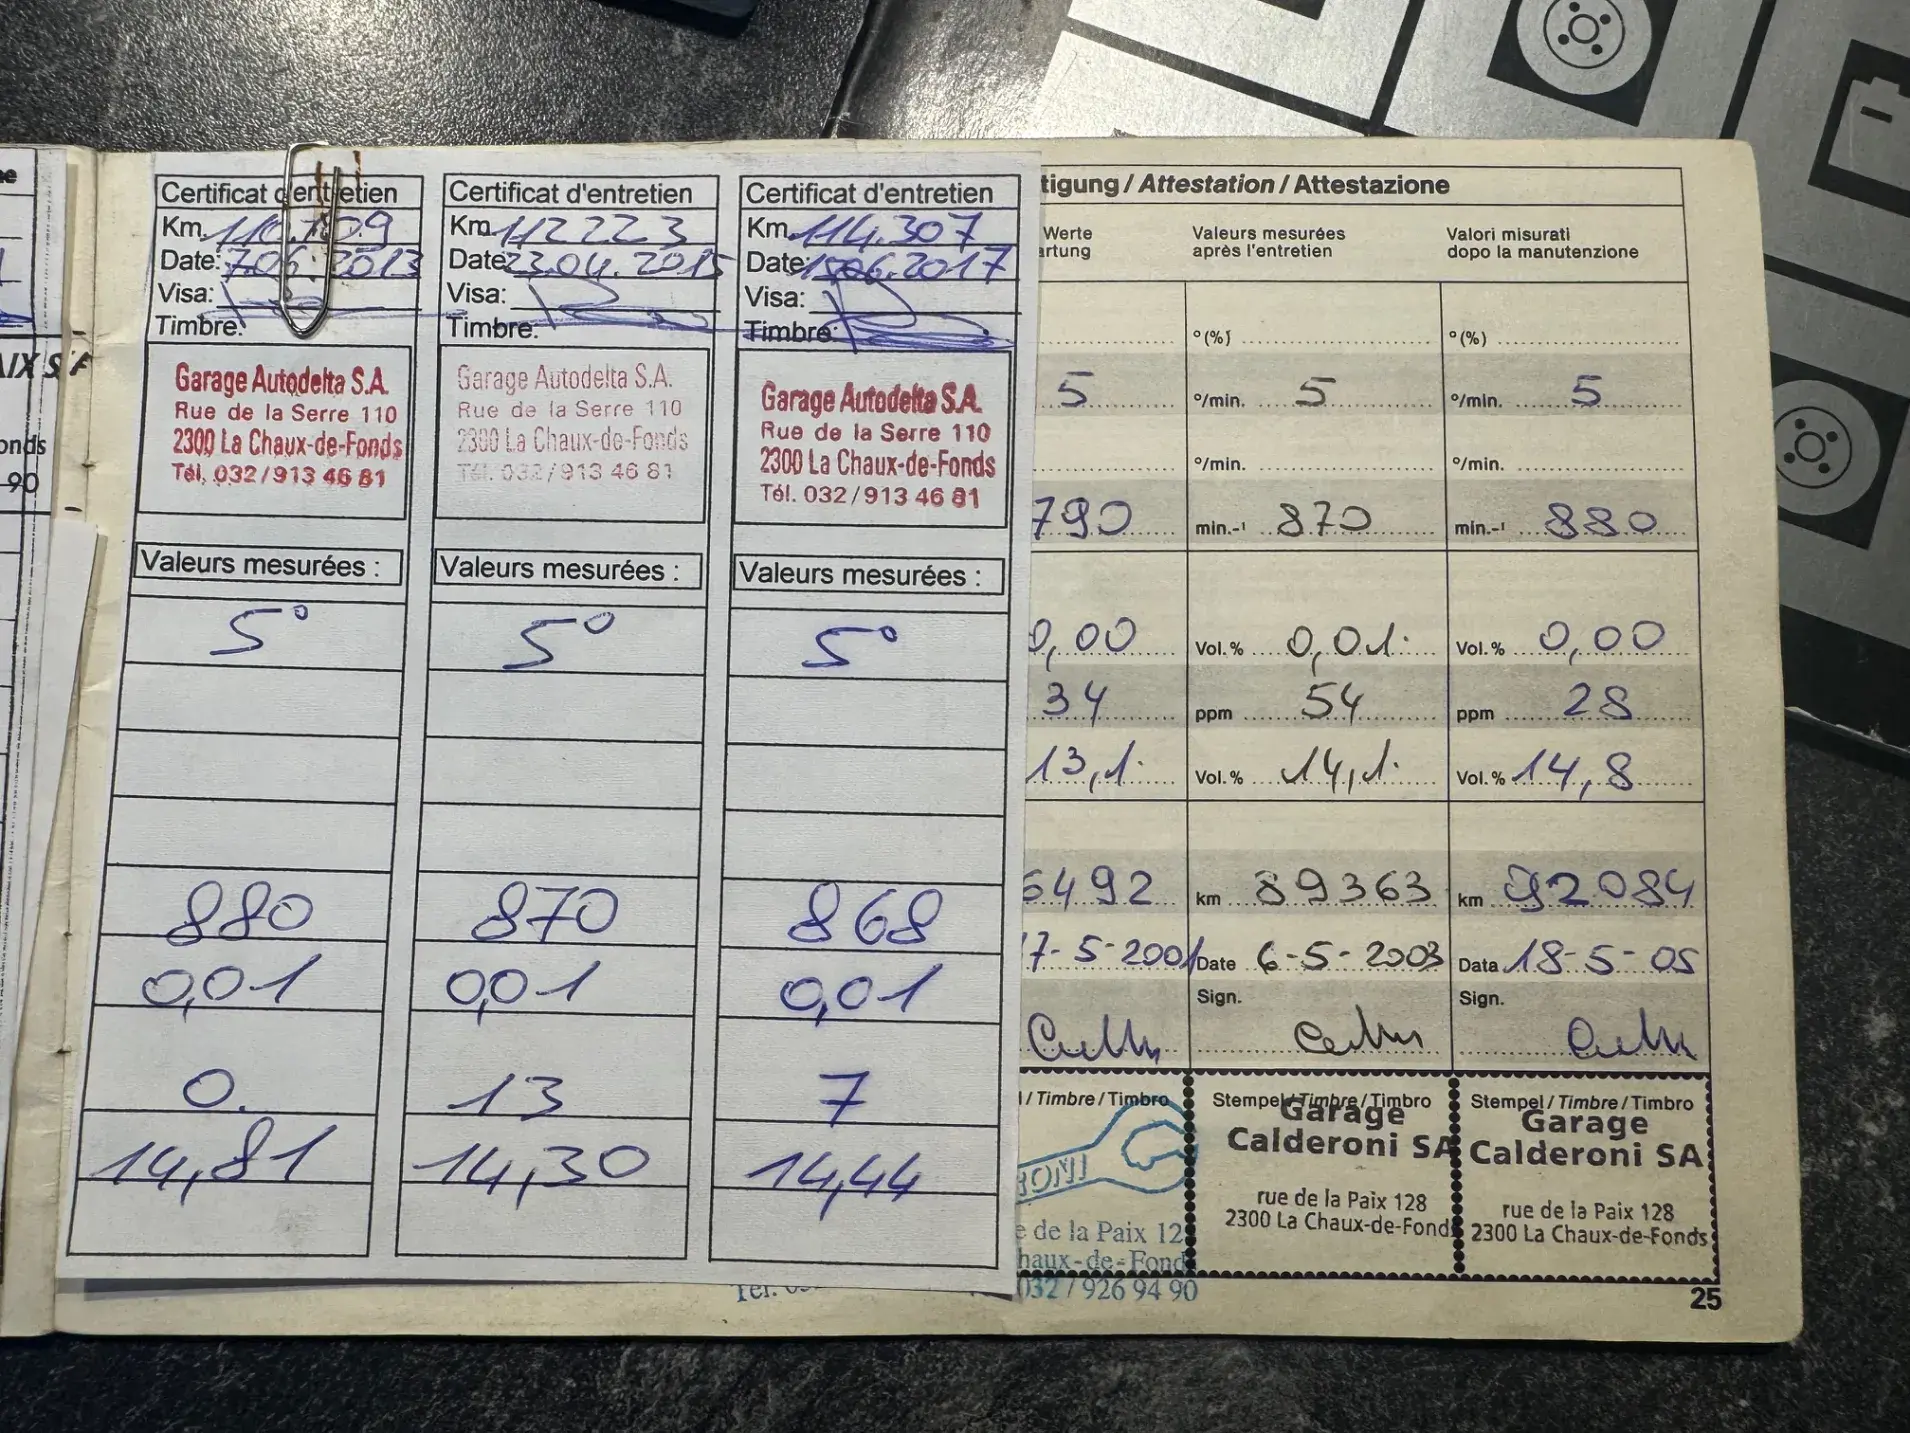 Certificat d'entretien
Km.
Date: 7.06.2013
Visa:
Timbre:
Garage Autodelta S.A.
Rue de la Serre 110
2300 La Chaux-de-Fonds
Tél. 032/913 46 81
Valeurs mesurées :
5°
880
0,01
0.
14,81
Certificat d'entretien
Km 112223
Date 23.04.2015
Visa:
Timbre:
Garage Autodelta S.A.
Rue de la Serre 110
2300 La Chaux-de-Fonds
Tél. 032/913 46 81
Valeurs mesurées :
5°
870
0,01
13
14,30
Certificat d'entretien
Km. 114.307
Date: 06.2017
Visa:
Timbre:
Garage Autodelta S.A.
Rue de la Serre 110
2300 La Chaux-de-Fonds
Tél. 032/913 46 81
Valeurs mesurées :
5°
868
0,01
7
14,44
tigung / Attestation / Attestazione
Werte
artung
5
790
0,00
34
13,1
6492
7-5-2001
l / Timbre / Timbro
RONI
e de la Paix 12
haux-de-Fond
032 / 926 94 90
Valeurs mesurées
après l'entretien
°(%)
°/min. 5
°/min.
min.-¹ 870
Vol.% 0,01
ppm 54
Vol.% 14,1
km 89363
Date 6-5-2003
Sign.
Stempel / Timbre / Timbro
Garage
Calderoni SA
rue de la Paix 128
2300 La Chaux-de-Fonds
Valori misurati
dopo la manutenzione
°(%)
°/min. 5
°/min.
min.-¹ 880
Vol.% 0,00
ppm 28
Vol.% 14,8
km 92084
Data 18-5-05
Sign.
Stempel / Timbre / Timbro
Garage
Calderoni SA
rue de la Paix 128
2300 La Chaux-de-Fonds
25